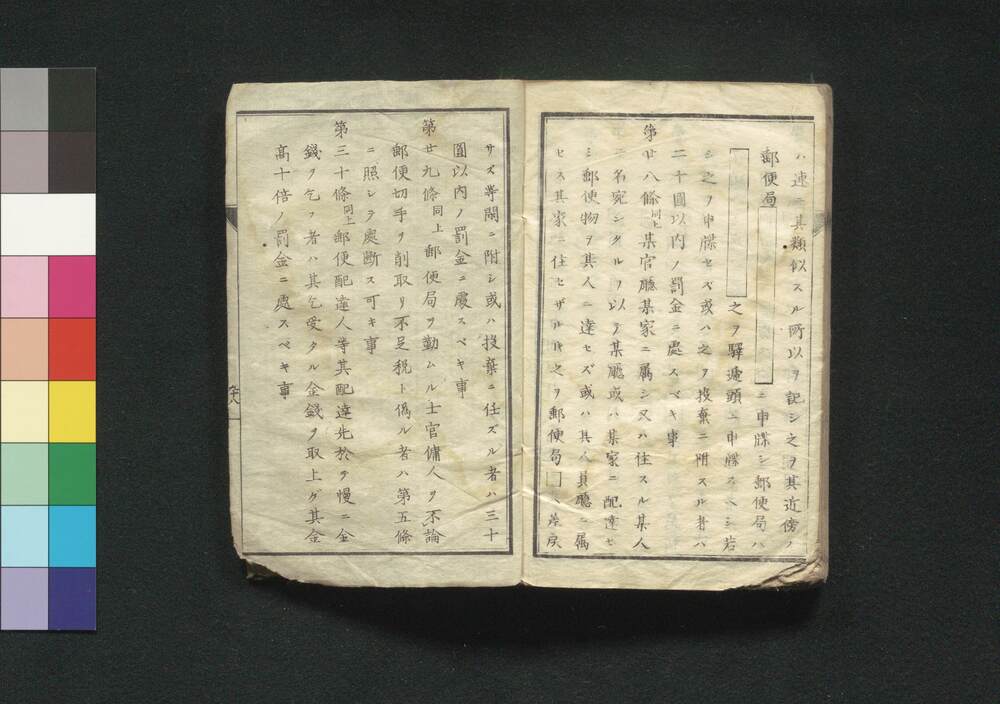 ハ速ニ其類似スル所以ヲ記シ之ヲ其近傍ノ
郵便局ニ申牒シ郵便局ハ
之ヲ驛逓頭ニ申牒スヘシ若
シ之ヲ申牒セズ或ハ之ヲ投棄ニ附スル者ハ
二十圓以内ノ罰金ニ處スベキ事
第廿八條同上某官廳某家ニ屬シ又ハ住スル某人
ニ名宛シタルヲ以テ某廳或ハ某家ニ配達セ
シ郵便物ヲ其人ニ達セズ或ハ其人其廳ニ屬
セス其家ニ住セザル時之ヲ郵便局ヘ差戻
サズ等閑ニ附シ或ハ投棄ニ任ズル者ハ三十
圓以内ノ罰金ニ處スベキ事
第廿九條同上郵便局ヲ勤ムル士官傭人ヲ不論
郵便切手ヲ削取リ不足税ト偽ル者ハ第五條
ニ照シテ處断ス可キ事
第三十條同上郵便配達人等其配達先於ヲ慢ニ金
錢ヲ乞フ者ハ其乞受タル金錢ヲ取上ゲ其金
高十倍ノ罰金ニ處スベキ事